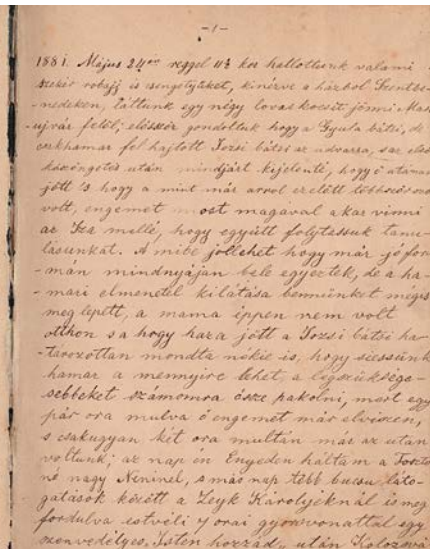 -1-
1881. Május 24én reggel 11½ kor hallottunk valami
szekér robajt is csengetyüket, kinézve a házból Szentbe-
-nedeken, láttunk egy négy lovas kocsit jönni Maros
-ujvár felöl; elösször gondoltuk hogy a Gyula bátsi, de
csakhamar fel hajtott Jozsi bátsi az udvarra, s az elsö
köszöngetés után mindjárt kijelenti, hogy ö utánam
jött is hogy a mint már arrol ez elött többször szó
volt, engemet most magával akar vinni
az Ika mellé, hogy együtt folytassuk tanu-
lásunkat. A mibe jóllehet hogy már jó for-
-mán mindnyájan bele egyeztek, de a ha-
-mari elmenetel kilátása bennünket mégis
meg lepett, a mama éppen nem volt
otthon s a hogy haza jött a Jozsi bátsi ha-
-tározottan mondta nékie is, hogy siessünk
hamar a mennyire lehet, a legszüksége-
sebbeket számomra ösze pakolni, mert egy
pár ora mulva ö engemet már elviszen,
s csakugyan két ora multán már az utan
voltunk; az nap én Enyeden háltam a
nö nagy Neninél, s más nap több bucsu láto-
gatások között a Zeyk Károlyéknál is meg
fordulva estvéli 7 orai gyorsvonattal egy
szenvedélyes „Isten hozzád„ után Kolozsvá